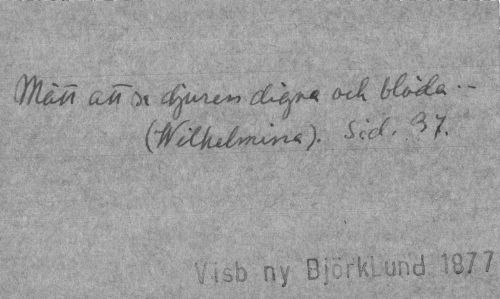 Mätt att se djuren digna och blöda --
(Wilhelmina). Sid. 37.
Visb ny BjörkLund 1877